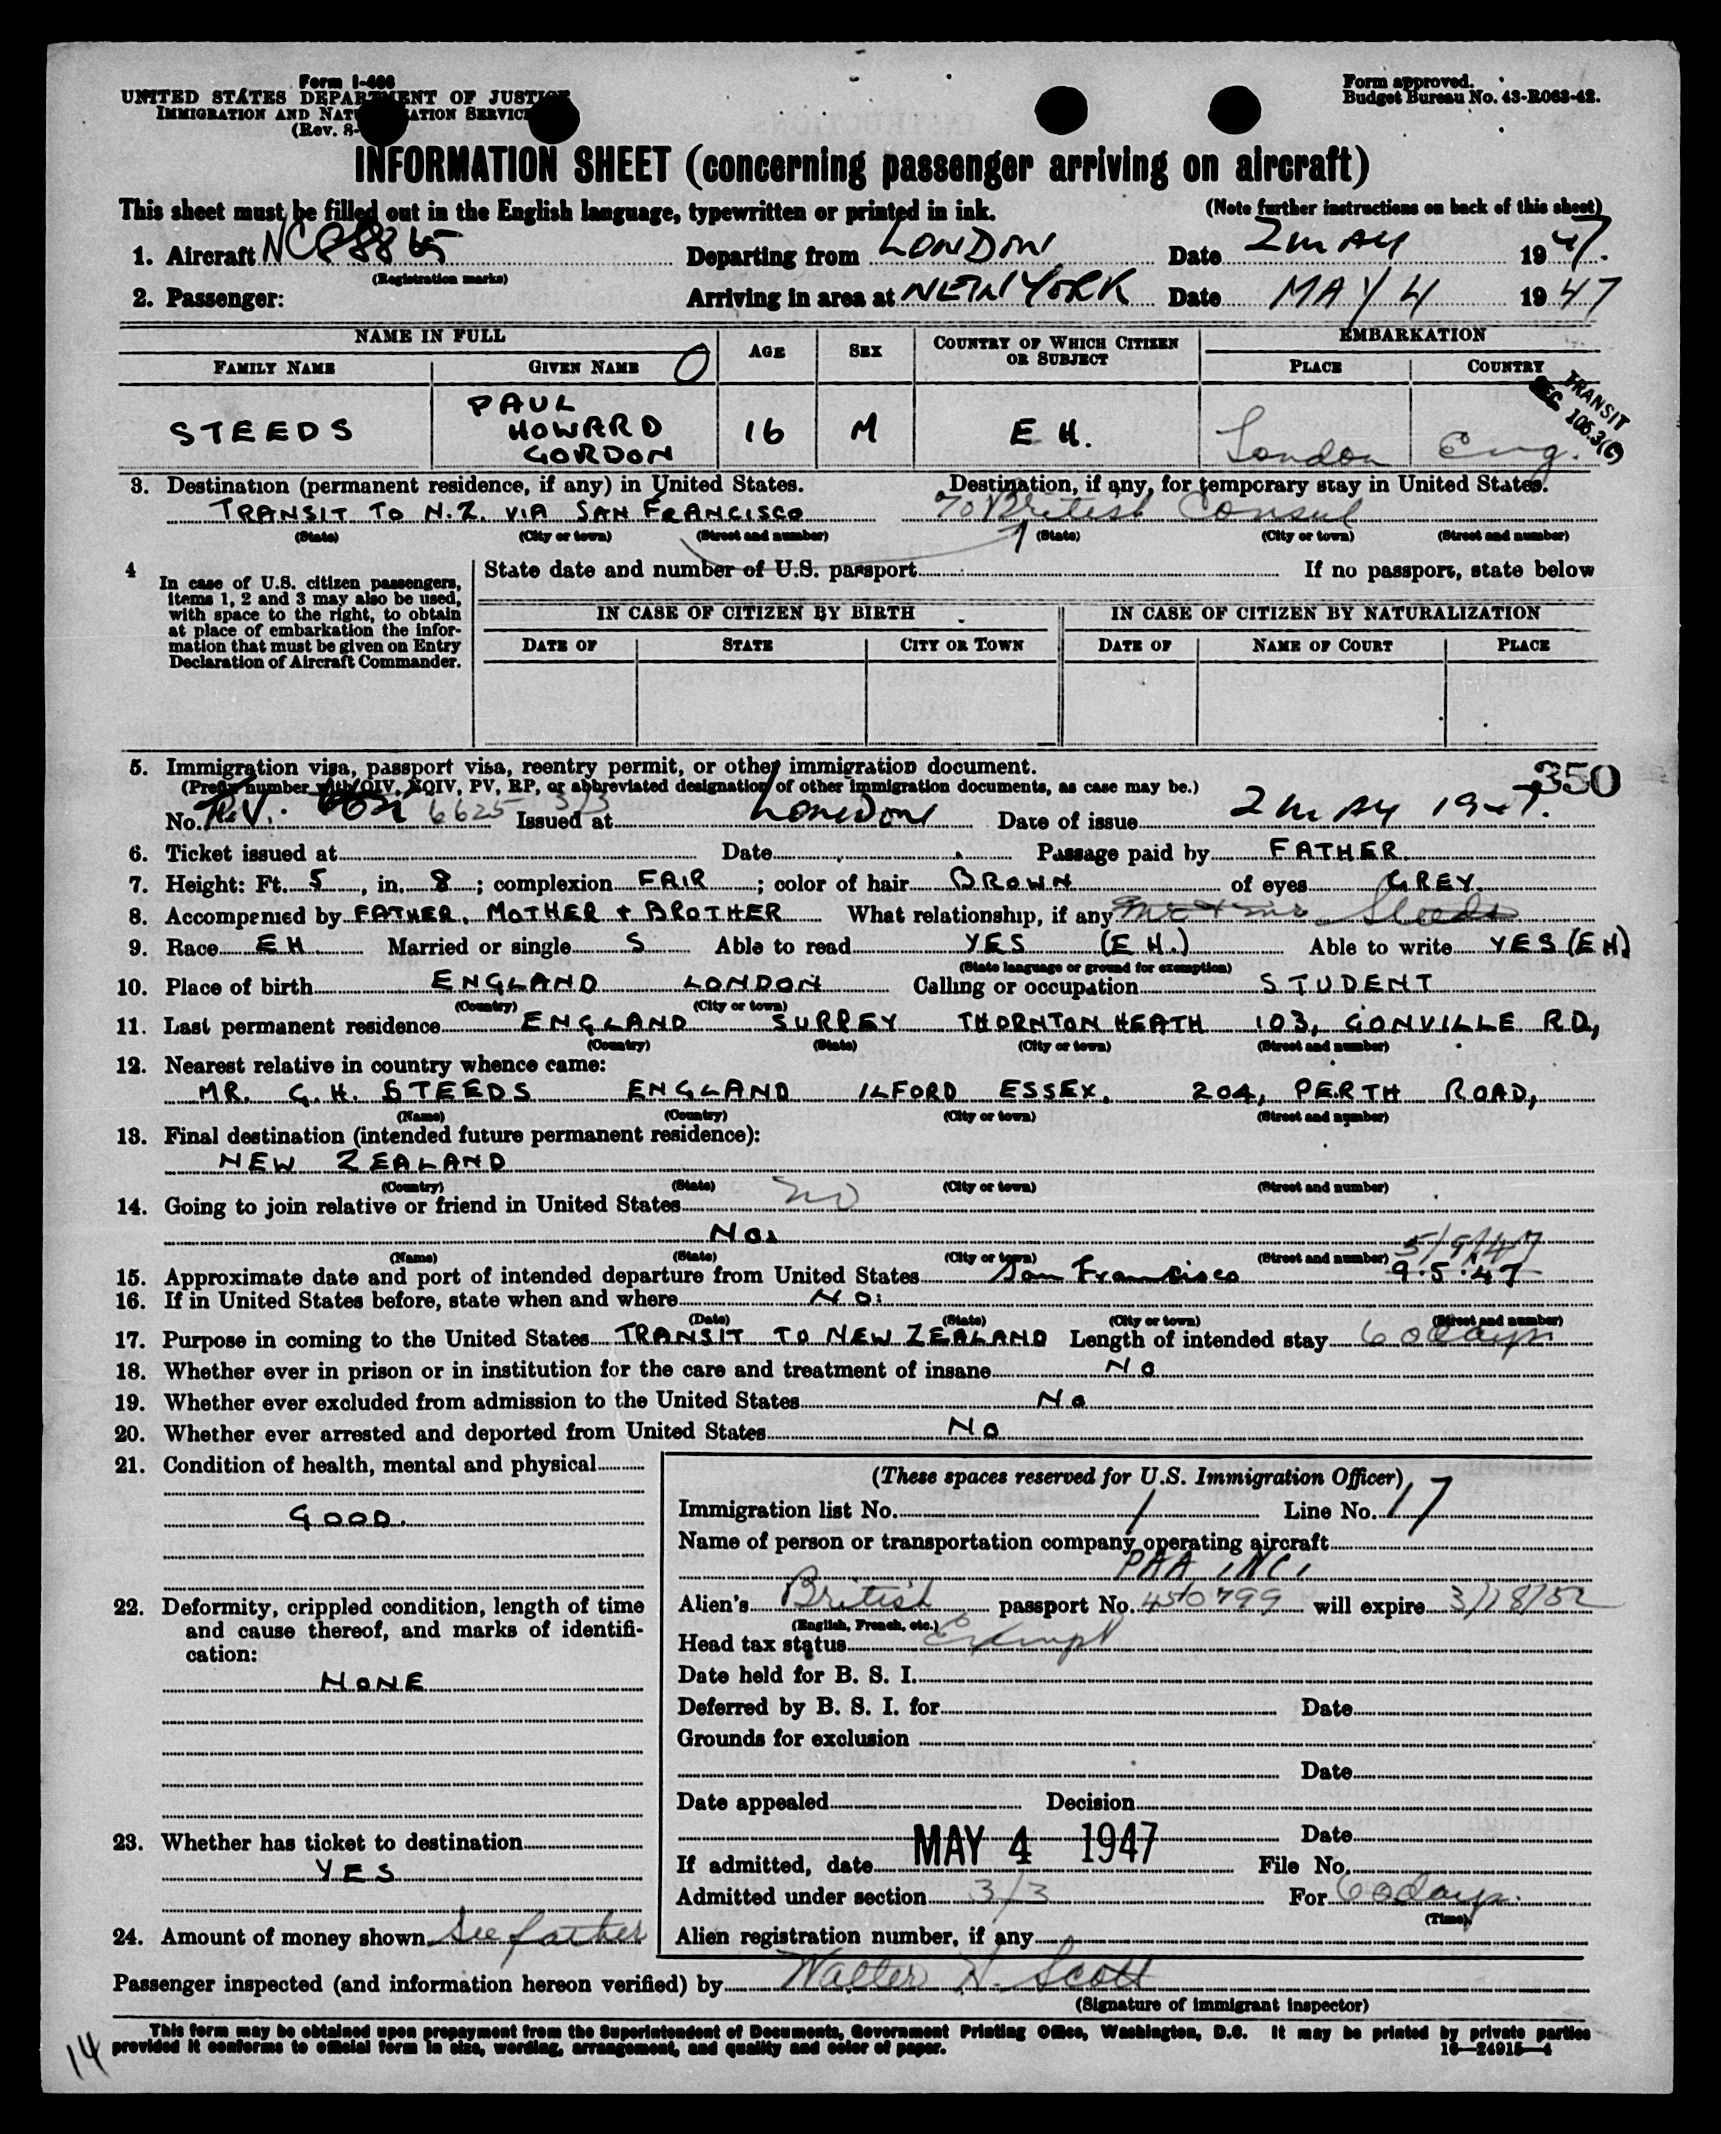 Form I-466
UNITED STATES DEPARTMENT OF JUSTICE
IMMIGRATION AND NATURALIZATION SERVICE
(Rev. 8-
Form approved.
Budget Bureau No. 43-R063-42.
INFORMATION SHEET (concerning passenger arriving on aircraft)
This sheet must be filled out in the English language, typewritten or printed in ink. (Note further instructions on back of this sheet)
1. Aircraft NC88865 Departing from LONDON Date 2 MAY 1947.
(Registration marks)
2. Passenger: Arriving in area at NEW YORK Date MAY 4 1947
NAME IN FULL AGE SEX COUNTRY OF WHICH CITIZEN OR SUBJECT EMBARKATION
FAMILY NAME GIVEN NAME O PLACE COUNTRY
TRANSIT
SEC 105.3(6)
STEEDS PAUL HOWARD GORDON 16 M E H. London Eng.
3. Destination (permanent residence, if any) in United States. Destination, if any, for temporary stay in United States.
TRANSIT TO N.Z. VIA SAN FRANCISCO % British Consul
(State) (City or town) (Street and number) (State) (City or town) (Street and number)
4 In case of U.S. citizen passengers, items 1, 2 and 3 may also be used, with space to the right, to obtain at place of embarkation the information that must be given on Entry Declaration of Aircraft Commander.
State date and number of U.S. passport If no passport, state below
IN CASE OF CITIZEN BY BIRTH IN CASE OF CITIZEN BY NATURALIZATION
DATE OF STATE CITY OR TOWN DATE OF NAME OF COURT PLACE
5. Immigration visa, passport visa, reentry permit, or other immigration document.
(Prefix number with QIV, NQIV, PV, RP, or abbreviated designation of other immigration documents, as case may be.) 350
No. P.V. 6625 3/3 Issued at London Date of issue 2 MAY 1947.
6. Ticket issued at Date Passage paid by FATHER.
7. Height: Ft. 5, in. 8; complexion FAIR; color of hair BROWN of eyes GREY.
8. Accompanied by FATHER, MOTHER + BROTHER What relationship, if any Mr + Mrs Steeds
9. Race EH. Married or single S Able to read YES (E H.) Able to write YES (EH)
(State language or ground for exemption)
10. Place of birth ENGLAND LONDON Calling or occupation STUDENT
(Country) (City or town)
11. Last permanent residence ENGLAND SURREY THORNTON HEATH 103, GONVILLE RD.,
(Country) (State) (City or town) (Street and number)
12. Nearest relative in country whence came:
MR. G. H. STEEDS ENGLAND ILFORD ESSEX. 204, PERTH ROAD,
(Name) (Country) (City or town) (Street and number)
13. Final destination (intended future permanent residence):
NEW ZEALAND
(Country) (State) (City or town) (Street and number)
14. Going to join relative or friend in United States no
No.
(Name) (State) (City or town) (Street and number) 5/9/47
15. Approximate date and port of intended departure from United States San Francisco 9.5.47
16. If in United States before, state when and where No.
(Date) (State) (City or town) (Street and number)
17. Purpose in coming to the United States TRANSIT TO NEW ZEALAND Length of intended stay 60 days
18. Whether ever in prison or in institution for the care and treatment of insane No
19. Whether ever excluded from admission to the United States No
20. Whether ever arrested and deported from United States No
21. Condition of health, mental and physical
GOOD.
22. Deformity, crippled condition, length of time and cause thereof, and marks of identification:
NONE
23. Whether has ticket to destination
YES
24. Amount of money shown See father
(These spaces reserved for U.S. Immigration Officer)
Immigration list No. 1 Line No. 17
Name of person or transportation company operating aircraft
PAA INC.
Alien's British passport No. 450799 will expire 3/28/52
(English, French, etc.)
Head tax status Exempt
Date held for B. S. I.
Deferred by B. S. I. for Date
Grounds for exclusion
Date
Date appealed Decision
Date
If admitted, date MAY 4 1947 File No.
Admitted under section 3/3 For 60 days.
(Time)
Alien registration number, if any
Passenger inspected (and information hereon verified) by Walter H. Scott
(Signature of immigrant inspector)
This form may be obtained upon prepayment from the Superintendent of Documents, Government Printing Office, Washington, D.C. It may be printed by private parties
provided it conforms to official form in size, wording, arrangement, and quality and color of paper. 16—24915-4
14